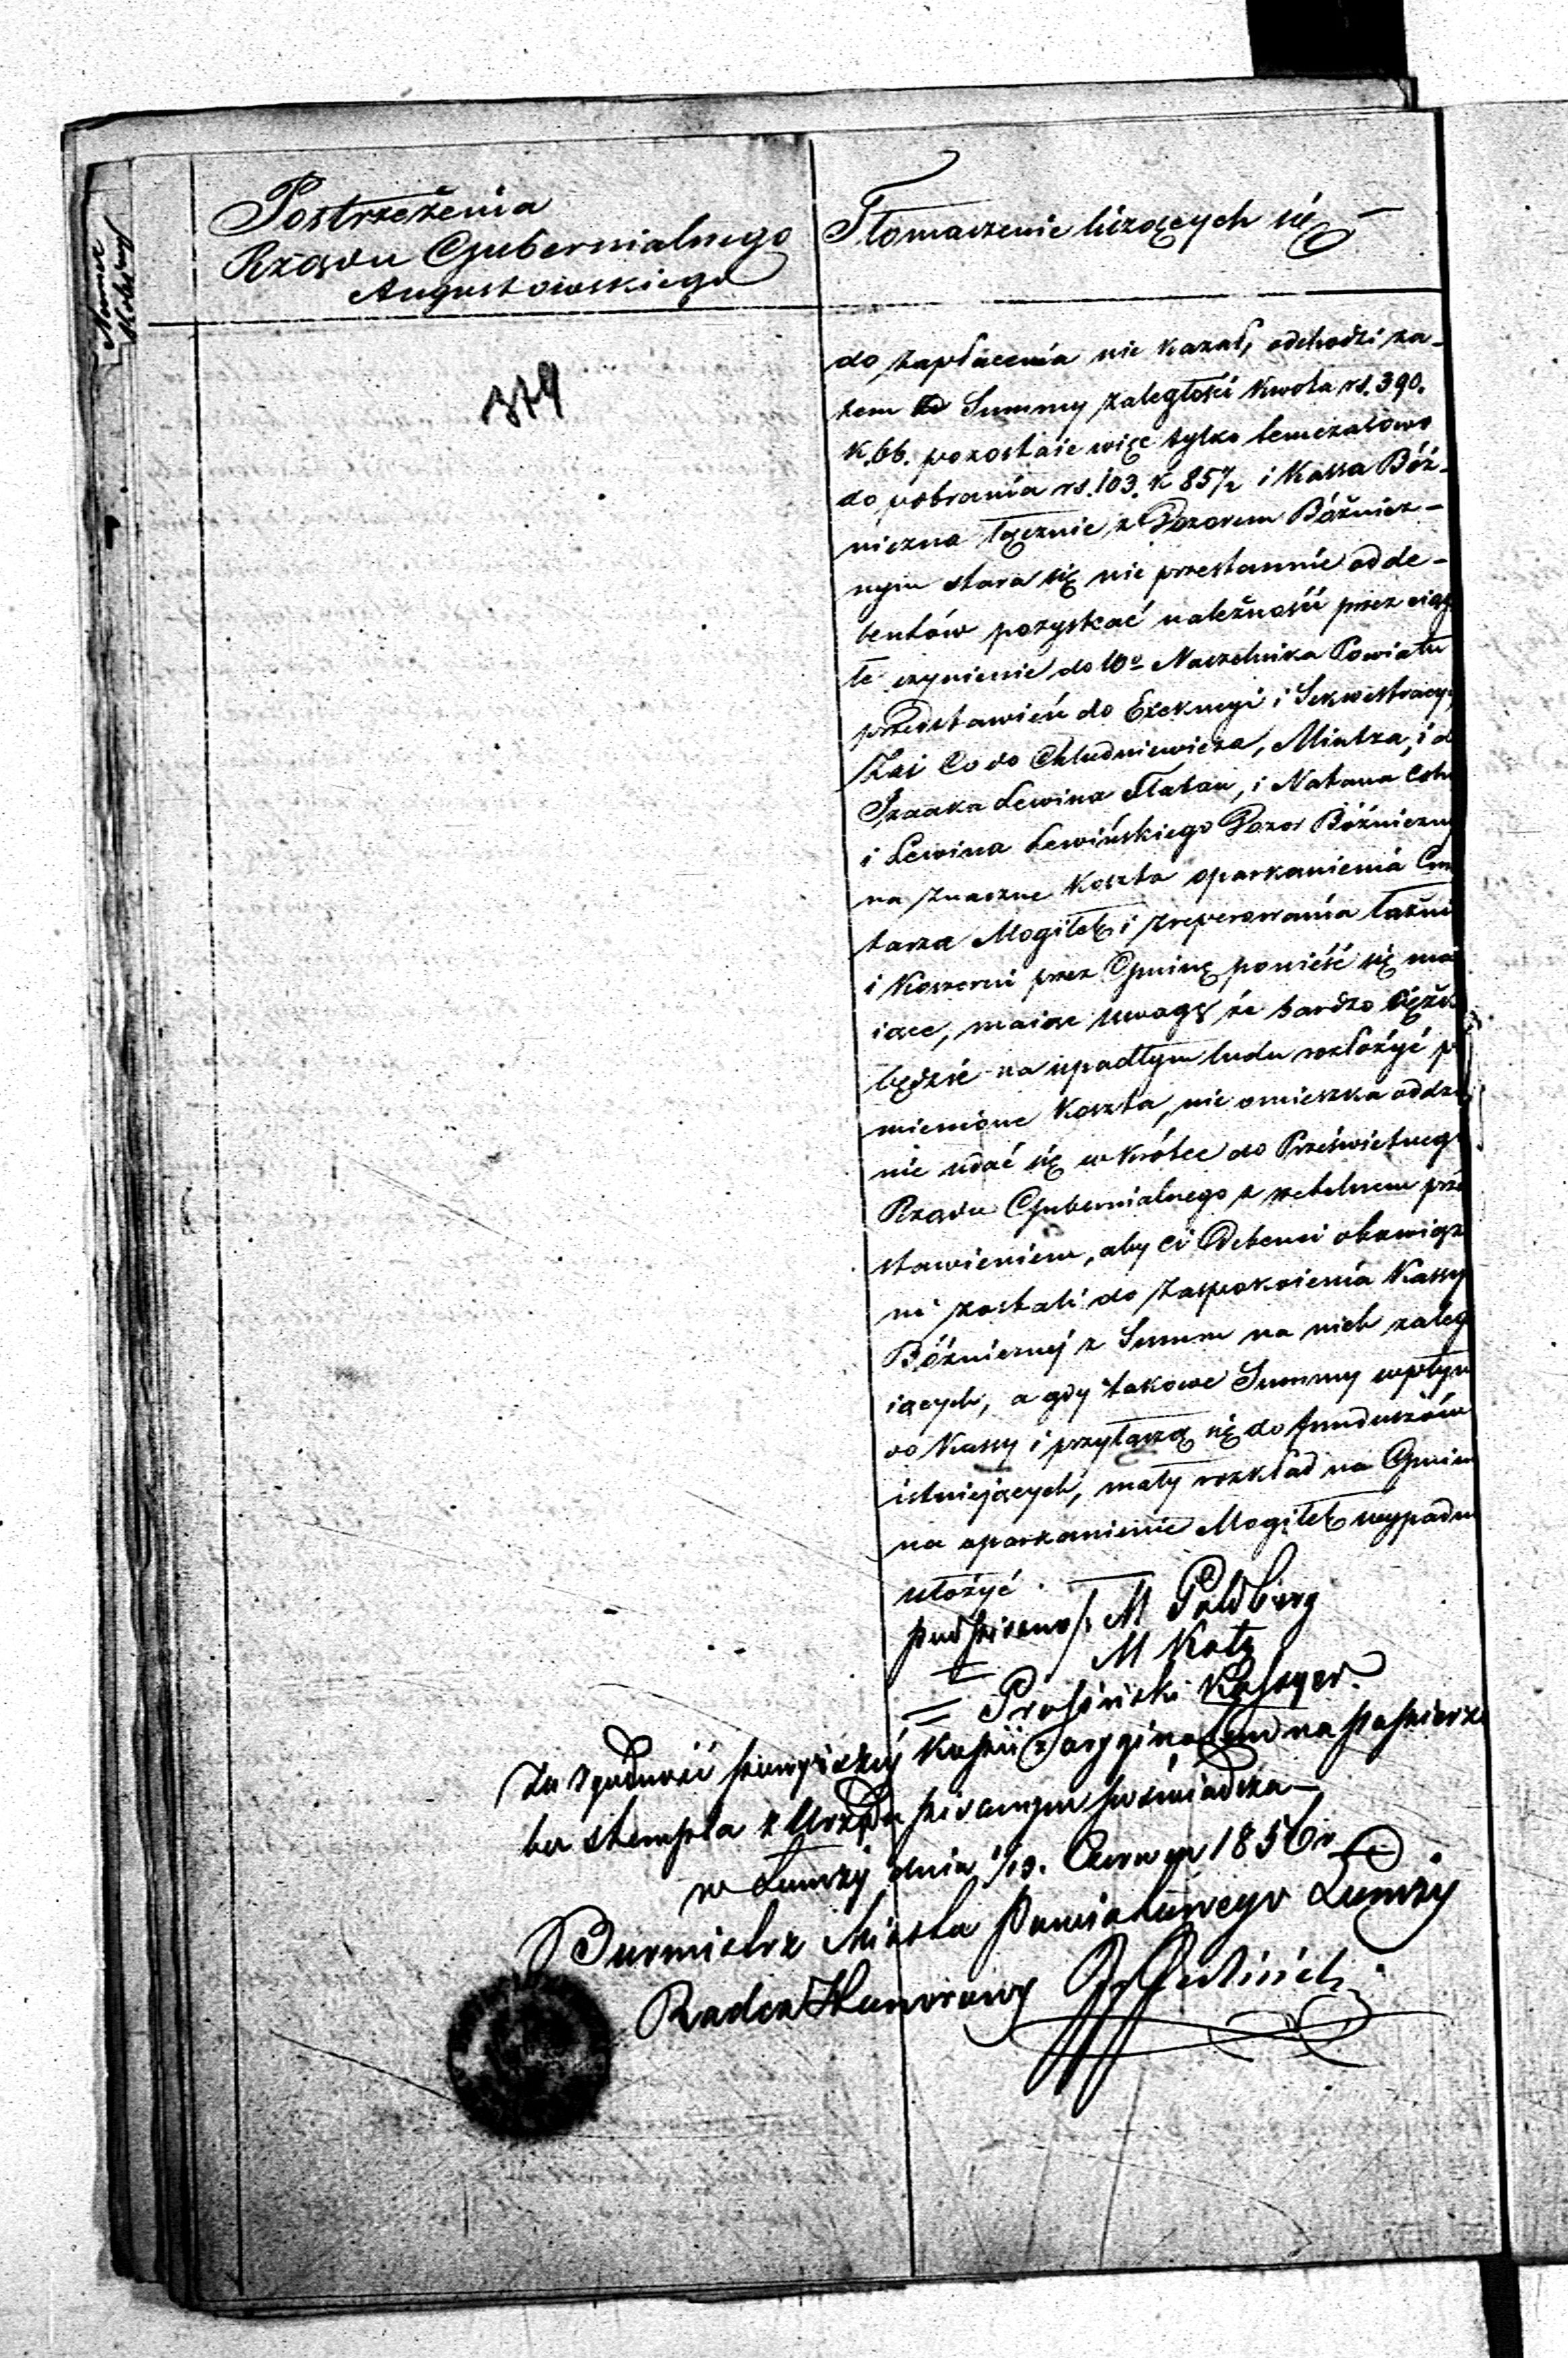 Numer
Kolejny
Postrzeżenia
Rządu Gubernialnego
Augustowskiego
Tłomaczenie liczących się
379
do zapłacenia nie kazał, odchodzi za-
tem Summy zaległości kwota rs. 390.
k. 66. pozostaie więc tylko temczasowo
do pobrania rs. 103. k 85½ i Kassa Bóż-
niczna łącznie z Dozorem Bóżnicz-
nym stara się nie przestannie od de-
bentów pozyskać należności przez ciąg
łe czynienie do Wo Naczelnika Powiatu
przedstawień do Exekucyi i Sekwestracyi
Zaś Co do Chludniewicza, Mintza, i d
Izaaka Lewina Flatau, i Natana Coh
i Lewina Lewińskiego Dozor Bóżniczny
na znaczne koszta oparkanienia Cm
tarza Mogiłek i zreperowania łaźni
i Koszerni przez Gminę ponieść się mai
iące, maiąc uwagę że bardzo ciężk
będzie na upadłym ludu rozłożyć p
mienione koszta, nie omieszka oddzi
nie udać się w krótce do Prześwietnego
Rządu Gubernialnego z rzetelnem prze
stawieniem, aby ci Debenci obowiąz
ni zostali do zaspokoienia Kassy
Bóżnicznej z Summ na nich zaleg
iących, a gdy takowe Summy wpłyn
do Kassy i przyłączą się do funduszów
istniejących, mały rozkład na Gmin
na oparkanienie Mogiłek wypadn
ułożyć.
podpisano /. M Goldberg
= M Katz
= Prosiński Kassyer.
Za zgodność powyższej Kopii z oryginałem na papierze
bez stempla z Urzędu pisanym poświadcza
w Łomży dnia 1/13. Czerwca 1856 r
Burmistrz Miasta Powiatowego Łomży
Radca Honorowy